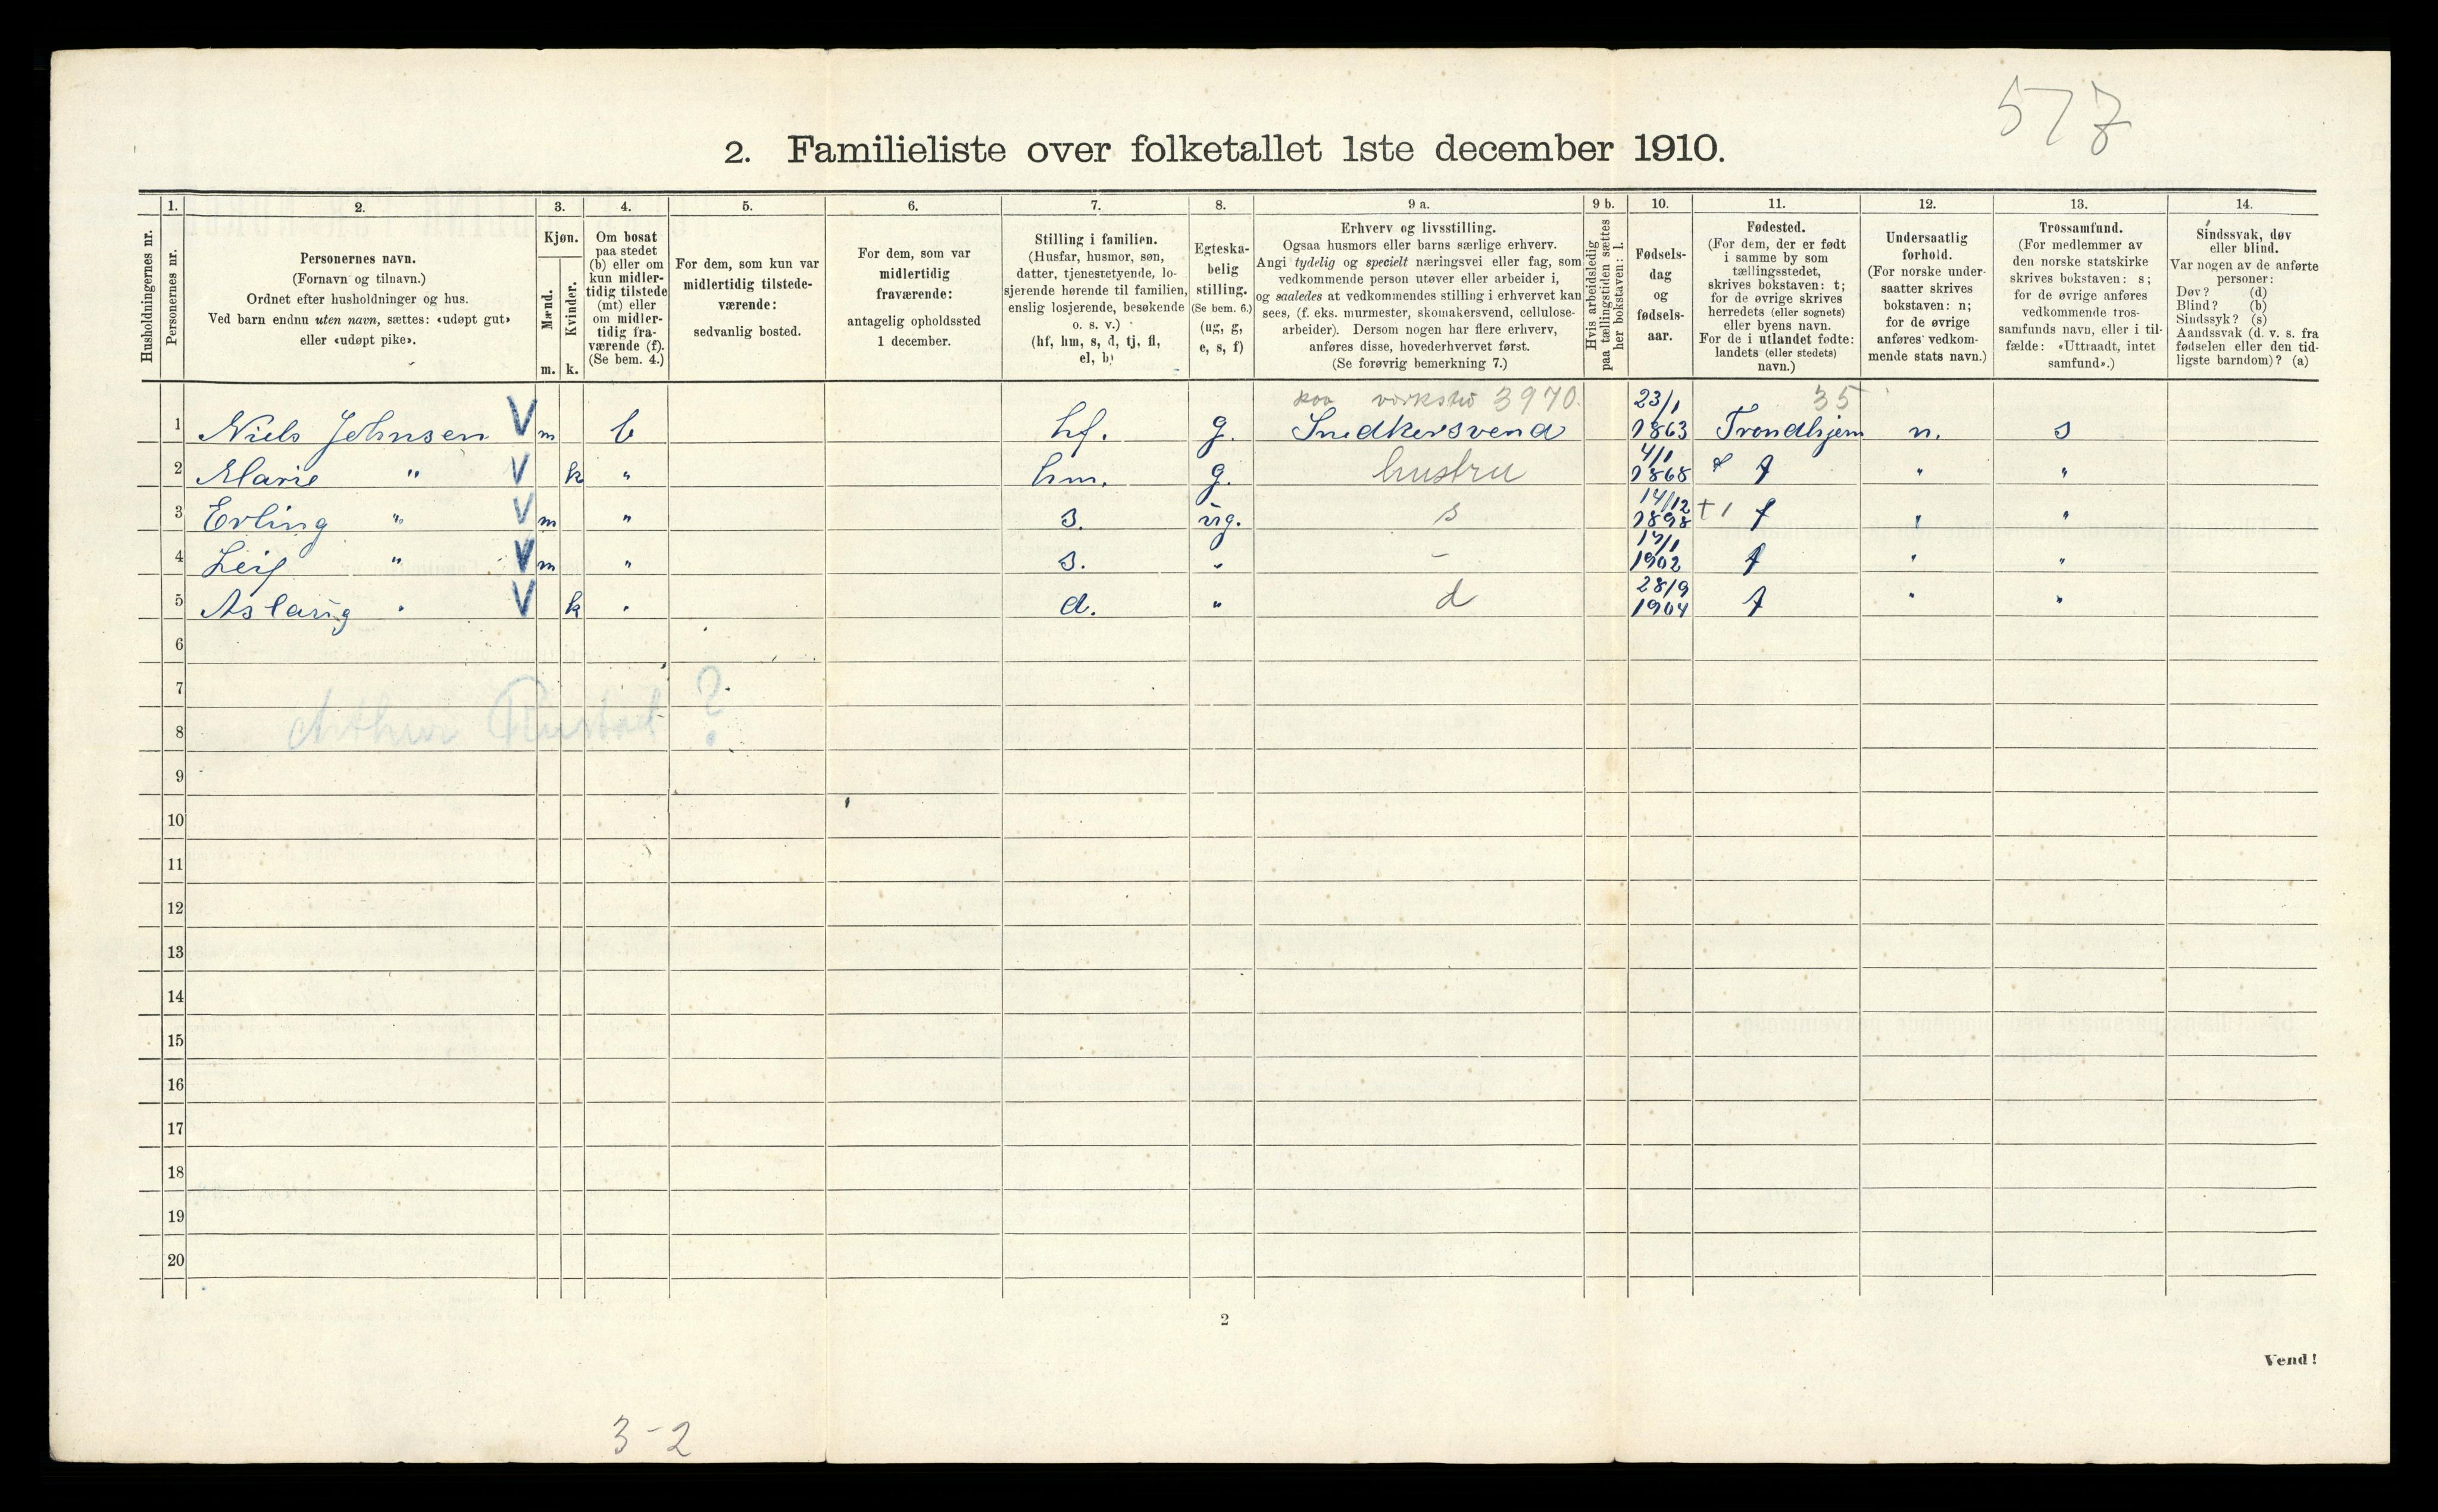 577
2. Familieliste over folketallet 1ste december 1910.
Husholdningernes nr.
1.
Personernes nr.
2.
Personernes navn.
(Fornavn og tilnavn.)
Ordnet efter husholdninger og hus.
Ved barn endnu uten navn, sættes: «udøpt gut»
eller «udøpt pike».
3.
Kjøn.
Mænd.
Kvinder.
m. k.
4.
Om bosat
paa stedet
(b) eller om
kun midler-
tidig tilstede
(mt) eller
om midler-
tidig fra-
værende (f).
(Se bem. 4.)
5.
For dem, som kun var
midlertidig tilstede-
værende:
sedvanlig bosted.
6.
For dem, som var
midlertidig
fraværende:
antagelig opholdssted
1 december.
7.
Stilling i familien.
(Husfar, husmor, søn,
datter, tjenestetyende, lo-
sjerende hørende til familien,
enslig losjerende, besøkende
o. s. v.)
(hf, hm, s, d, tj, fl,
el, b)
8.
Egteska-
belig
stilling.
(Se bem. 6.)
(ug, g,
e, s, f)
9 a.
Erhverv og livsstilling.
Ogsaa husmors eller barns særlige erhverv.
Angi tydelig og specielt næringsvei eller fag, som
vedkommende person utøver eller arbeider i,
og saaledes at vedkommendes stilling i erhvervet kan
sees, (f. eks. murmester, skomakersvend, cellulose-
arbeider). Dersom nogen har flere erhverv,
anføres disse, hovederhvervet først.
(Se forøvrig bemerkning 7.)
9 b.
Hvis arbeidsledig
paa tællingstiden sættes
her bokstaven: l.
10.
Fødsels-
dag
og
fødsels-
aar.
11.
Fødested.
(For dem, der er født
i samme by som
tællingsstedet,
skrives bokstaven: t;
for de øvrige skrives
herredets (eller sognets)
eller byens navn.
For de i utlandet fødte:
landets (eller stedets)
navn.)
12.
Undersaatlig
forhold.
(For norske under-
saatter skrives
bokstaven: n;
for de øvrige
anføres vedkom-
mende stats navn.)
13.
Trossamfund.
(For medlemmer av
den norske statskirke
skrives bokstaven: s;
for de øvrige anføres
vedkommende tros-
samfunds navn, eller i til-
fælde: «Uttraadt, intet
samfund».)
14.
Sindssvak, døv
eller blind.
Var nogen av de anførte
personer:
Døv? (d)
Blind? (b)
Sindssyk? (s)
Aandssvak (d. v. s. fra
fødselen eller den tid-
ligste barndom)? (a)
3970. 35
1 Niels Johnsen V m b hf. g. Snedkersvend 23/1 1863 Trondhjem n. s
2 Marie " V k " hm. g. hustru 4/1 1868 t " "
3 Erling " V m " s. ug. s 14/12 1898 t " "
4 Leif " V m " s. " - 17/1 1902 t " "
5 Aslaug " V k " d. " d 28/9 1904 t " "
6
7
8 Arthur Rustad ?
9
10
11
12
13
14
15
16
17
18
19
20
2
Vend!
3-2